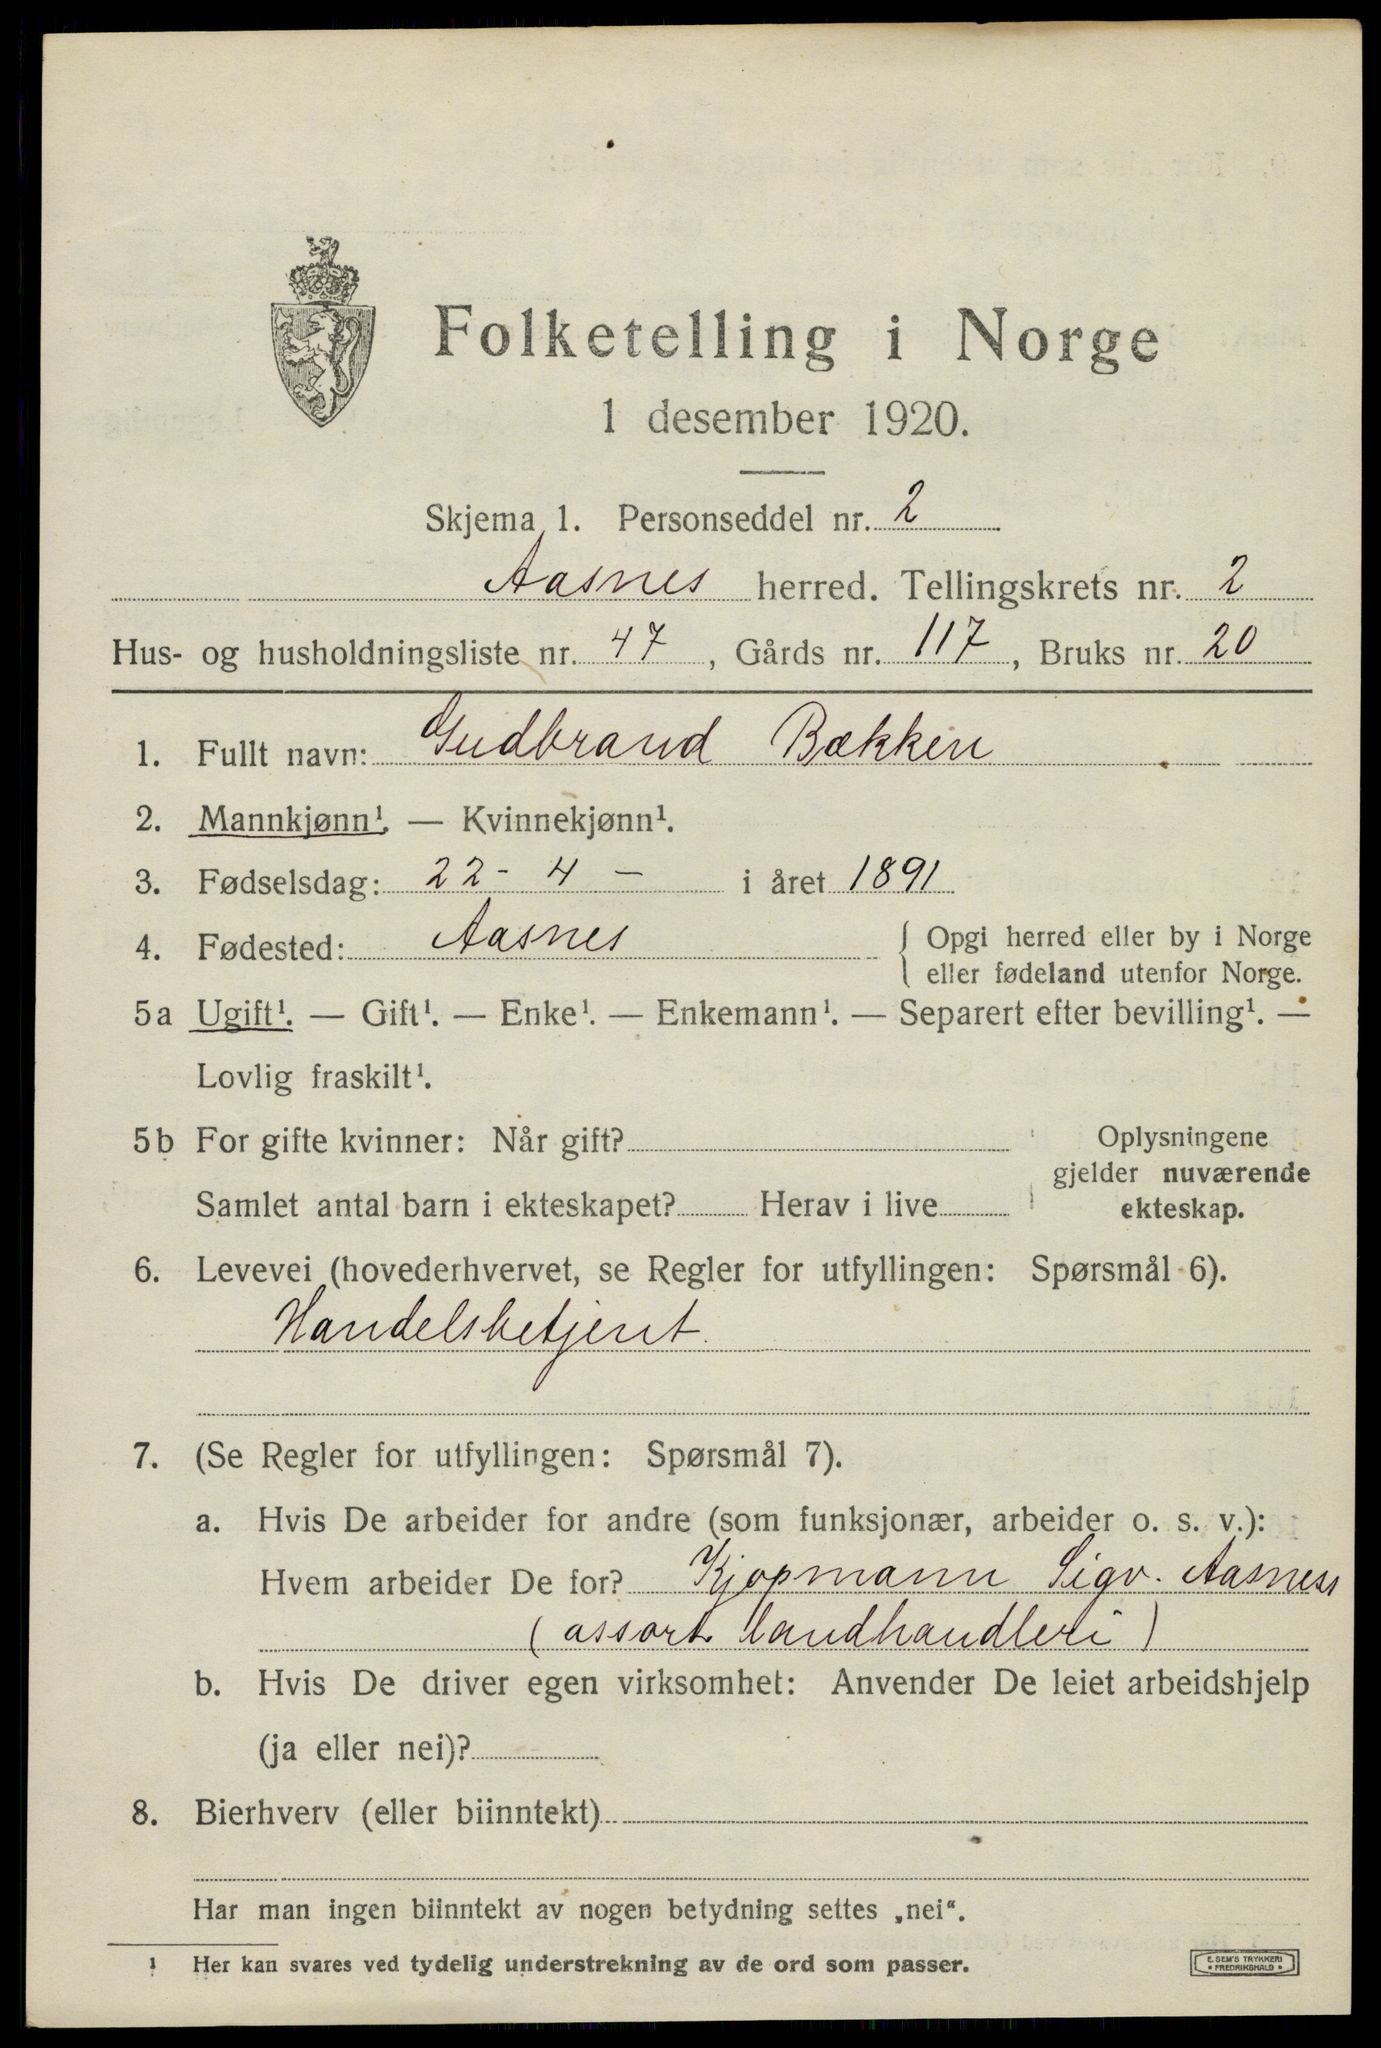 Folketelling i Norge
1 desember 1920.
Skjema 1. Personseddel nr. 2
Aasnes herred. Tellingskrets nr. 2
Hus- og husholdningsliste nr. 47, Gårds nr. 117, Bruks nr. 20
1. Fullt navn: Gudbrand Bækken
2. Mannkjønn¹. — Kvinnekjønn¹.
3. Fødselsdag: 22 - 4 - i året 1891
4. Fødested: Aasnes { Opgi herred eller by i Norge
eller fødeland utenfor Norge.
5a Ugift¹. — Gift¹. — Enke¹. — Enkemann¹. — Separert efter bevilling¹. —
Lovlig fraskilt¹.
5b For gifte kvinner: Når gift?
Samlet antal barn i ekteskapet? Herav i live
Oplysningene
gjelder nuværende
ekteskap.
6. Levevei (hovederhvervet, se Regler for utfyllingen: Spørsmål 6).
Handelsbetjent.
7. (Se Regler for utfyllingen: Spørsmål 7).
a. Hvis De arbeider for andre (som funksjonær, arbeider o. s. v.):
Hvem arbeider De for? Kjøpmann Sigv. Aasness
(assort landhandleri)
b. Hvis De driver egen virksomhet: Anvender De leiet arbeidshjelp
(ja eller nei)?
8. Bierhverv (eller biinntekt)
Har man ingen biinntekt av nogen betydning settes „nei“.
¹ Her kan svares ved tydelig understrekning av de ord som passer.
E. SEM'S TRYKKERI
• FREDRIKSHALD •